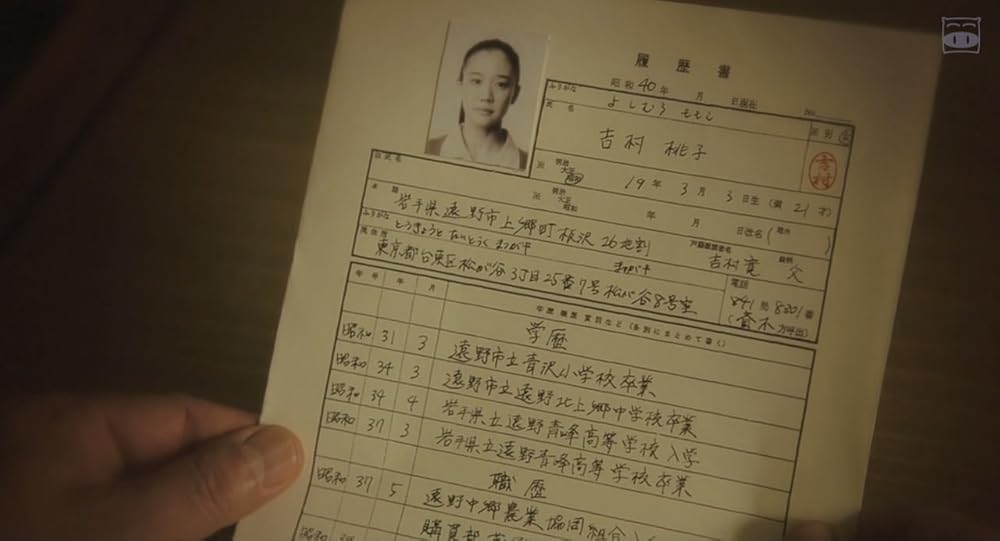 履歴書
昭和40年 月 日現在 No.
ふりがな よしむら ももこ
氏名 吉村 桃子 吉村
明治 大正 昭和 19年3月3日生(満21才)
旧氏名 明治 大正 昭和 年 月 日改名(
本籍 岩手県遠野市上郷町板沢26地割 戸籍筆頭者名 吉村寛 続柄 父
ふりがな とうきょうと たいとうく まつがや まつがや
現住所 東京都台東区松が谷3丁目25番7号松が谷8号室 電話 841局8201番
(斎木方呼出)
年号 年 月 学歴 職歴 賞罰など(各別にまとめて書く)
学歴
昭和 31 3 遠野市立青沢小学校卒業
昭和 34 3 遠野市立遠野北上郷中学校卒業
昭和 34 4 岩手県立遠野青峰高等学校入学
昭和 37 3 岩手県立遠野青峰高等学校卒業
職歴
昭和 37 5 遠野中郷農業協同組合
購買部